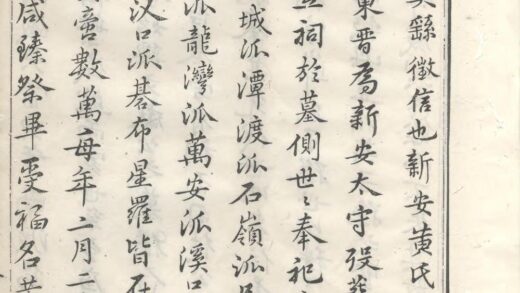 縣徵信也新安黄氏
東晉為新安太守歿葬
祠於墓側世〻奉祀
城派潭渡派石嶺派
派龍灣派萬安派溪口
汊口派碁布星羅皆在
啻數萬每年二月二
咸臻祭畢受福名